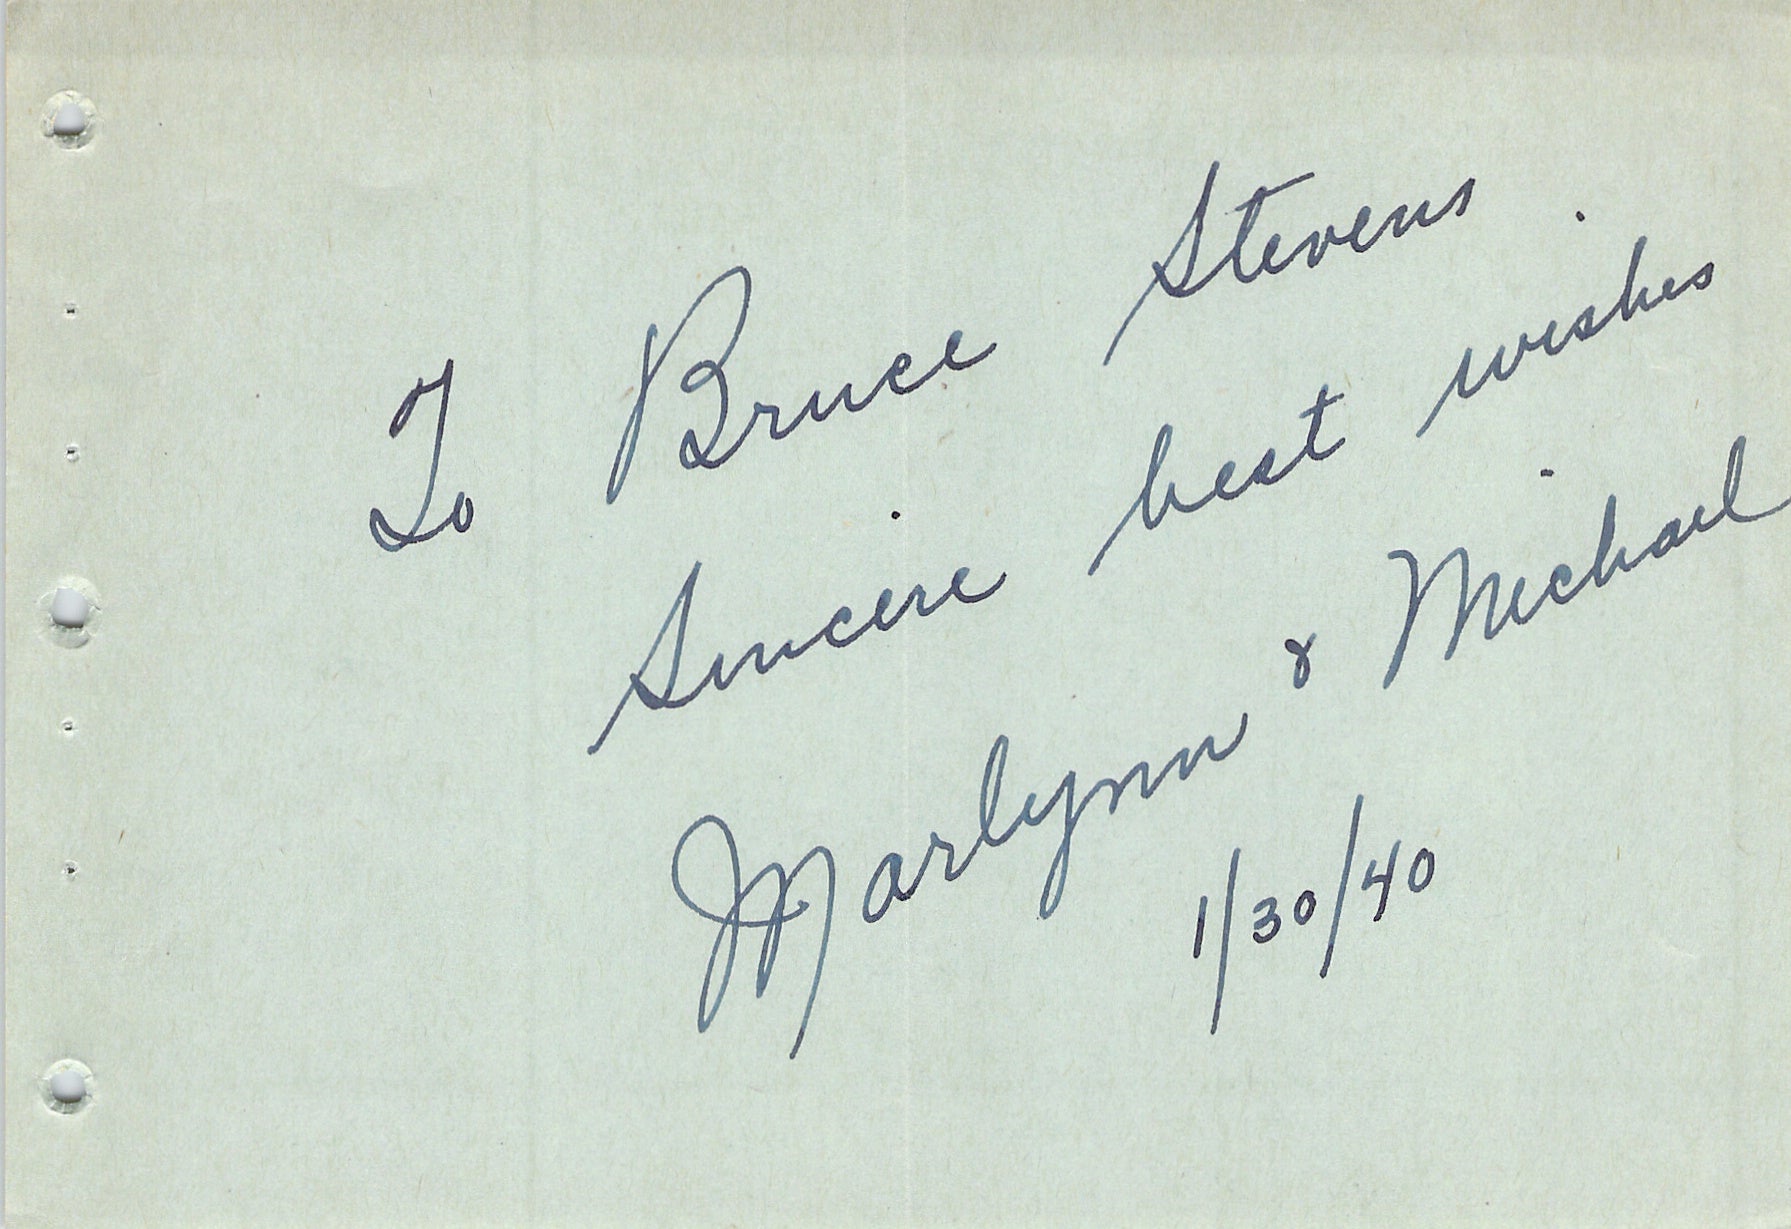 To Bruce Stevens
Sincere best wishes
Marlynn & Michael
1/30/40